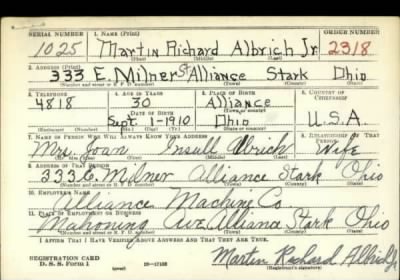 SERIAL NUMBER 1. NAME (Print) ORDER NUMBER
1025 Martin Richard Albrich Jr 2318
(First) (Middle) (Last)
2. ADDRESS (Print)
333 E. Milner St Alliance Stark Ohio
(Number and street or R. F. D. number) (Town) (County) (State)
3. TELEPHONE 4. AGE IN YEARS 5. PLACE OF BIRTH 6. COUNTRY OF CITIZENSHIP
4818 30 Alliance
DATE OF BIRTH (Town or county)
Sept. 1-1910 Ohio U.S.A.
(Exchange) (Number) (Mo.) (Day) (Yr.) (State or country)
7. NAME OF PERSON WHO WILL ALWAYS KNOW YOUR ADDRESS 8. RELATIONSHIP OF THAT PERSON
Mrs. Joan Insull Albrich Wife
(Mr., Mrs., Miss) (First) (Middle) (Last)
9. ADDRESS OF THAT PERSON
333 E. Milner Alliance Stark Ohio
(Number and street or R. F. D. number) (Town) (County) (State)
10. EMPLOYER'S NAME
Alliance Machine Co.
11. PLACE OF EMPLOYMENT OR BUSINESS
Mahoning Ave Alliance Stark Ohio
(Number and street or R. F. D. number) (Town) (County) (State)
I AFFIRM THAT I HAVE VERIFIED ABOVE ANSWERS AND THAT THEY ARE TRUE.
REGISTRATION CARD
D. S. S. Form 1 (over) Martin Richard Albrich Jr
(Registrant's signature)